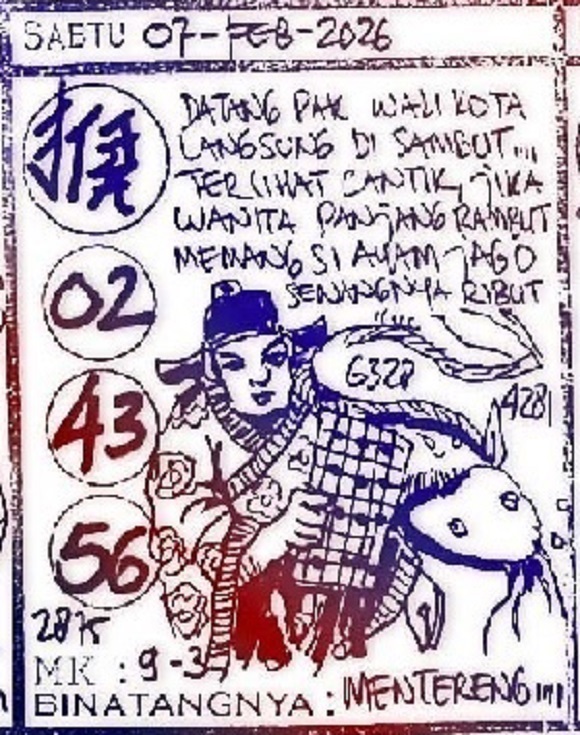 SABTU 07-FEB-2026
猴
DATANG PAK WALI KOTA
LANGSUNG DI SAMBUT,,,,
TERLIHAT CANTIK, JIKA
WANITA PANJANG RAMBUT
MEMANG SI AYAM JAGO
SENANGNYA RIBUT
02
6328
4281
43
56
2875
MK : 9-3
BINATANGNYA : MENTERENG,,,,